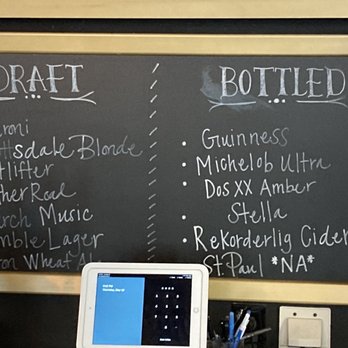 DRAFT
roni
ttsdale Blonde
tlifter
her Road
rch Music
mble Lager
on Wheat Al
BOTTLED
• Guinness
• Michelob Ultra
• Dos XX Amber
Stella
• Rekorderlig Cider
St. Paul *NA*